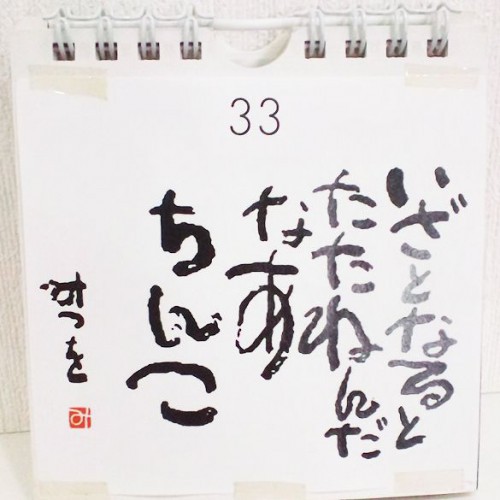 33
いざとなると
たたねんだ
なあ
ちんこ
みつを
み